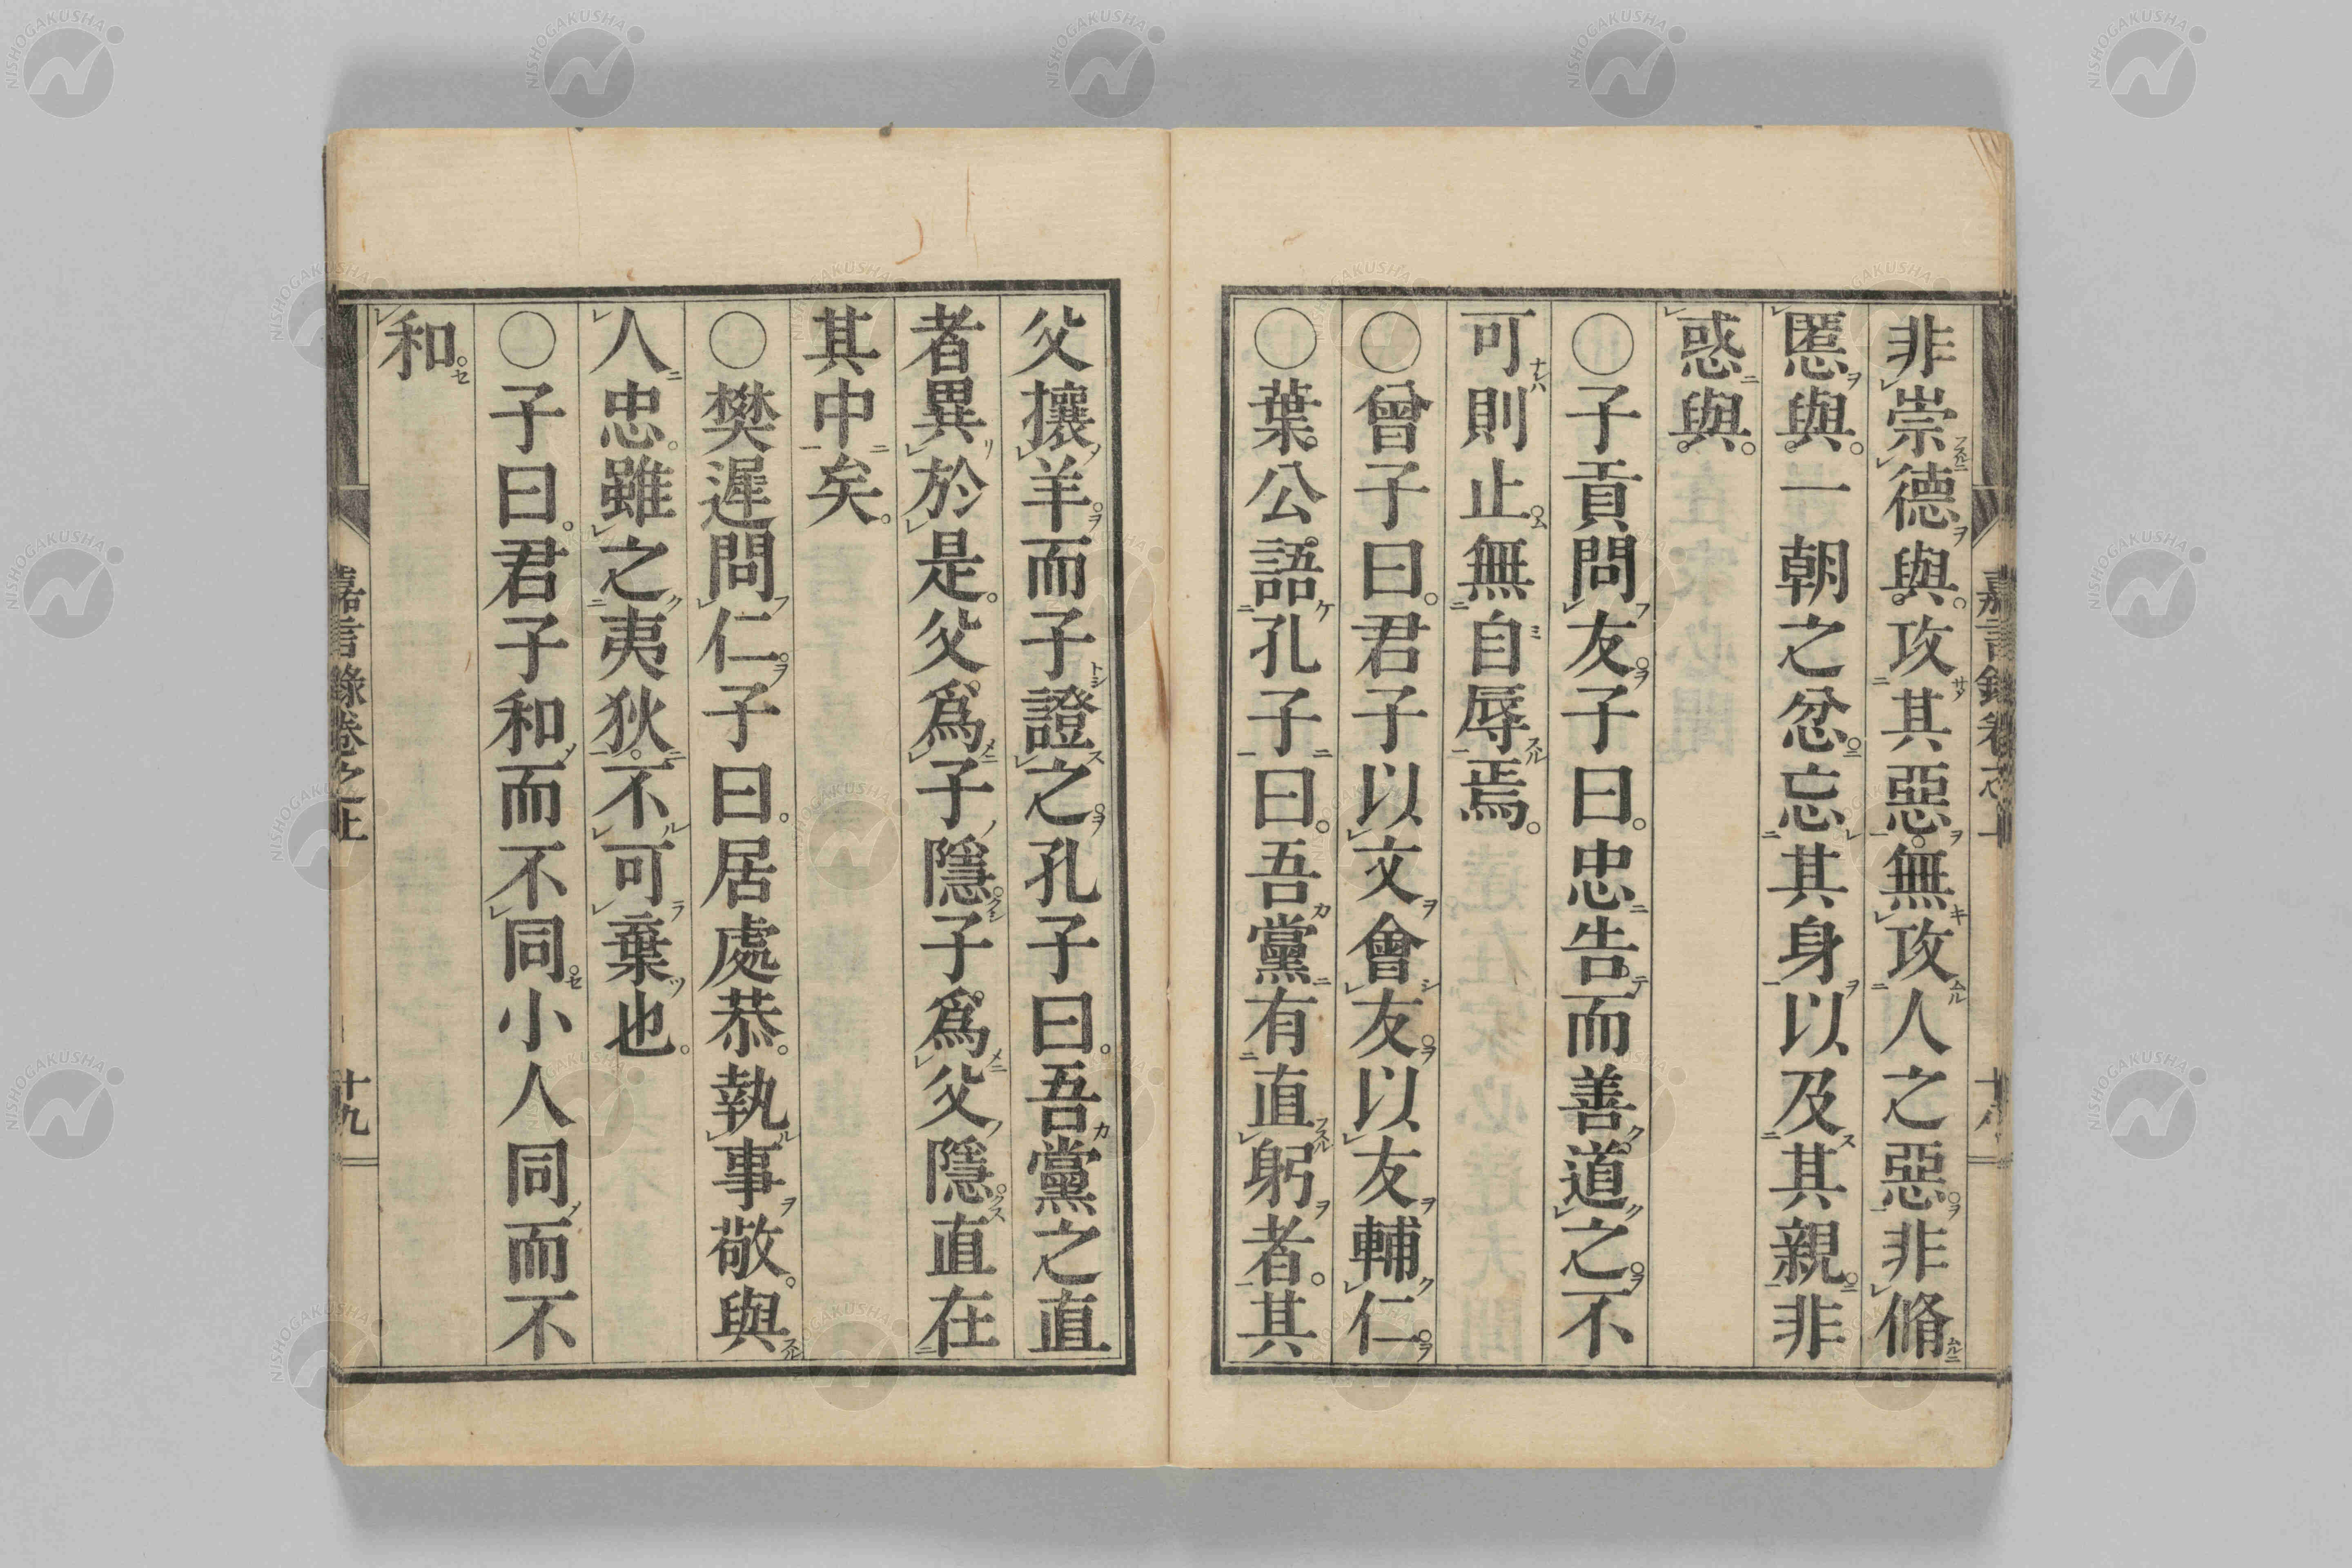 非崇德與。攻其惡。無攻人之惡。非脩
慝與。一朝之忿。忘其身以及其親。非
惑與。
○子貢問友。子曰。忠告而善道之。不
可則止。無自辱焉。
○曾子曰。君子以文會友。以友輔仁。
○葉公語孔子曰。吾黨有直躬者。其
父攘羊。而子證之。孔子曰。吾黨之直
者異於是。父爲子隱。子爲父隱。直在
其中矣。
○樊遲問仁。子曰。居處恭。執事敬。與
人忠。雖之夷狄。不可棄也。
○子曰。君子和而不同。小人同而不
和。
嘉言錄卷之上
十九
NISHOGAKUSHA